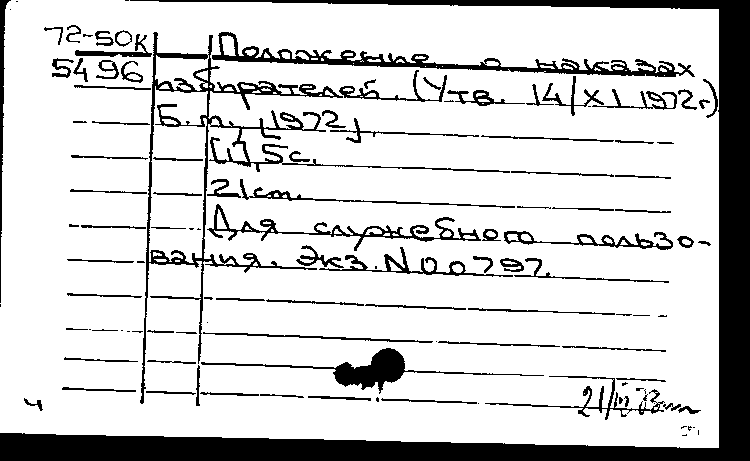 72-50К Положение о наказах
5496 избирателей. (Утв. 14/XI 1972г.)
Б.м., [1972].
[1], 5с.
21см.
Для служебного пользо-
вания. Экз. N00797.
ч
21/III